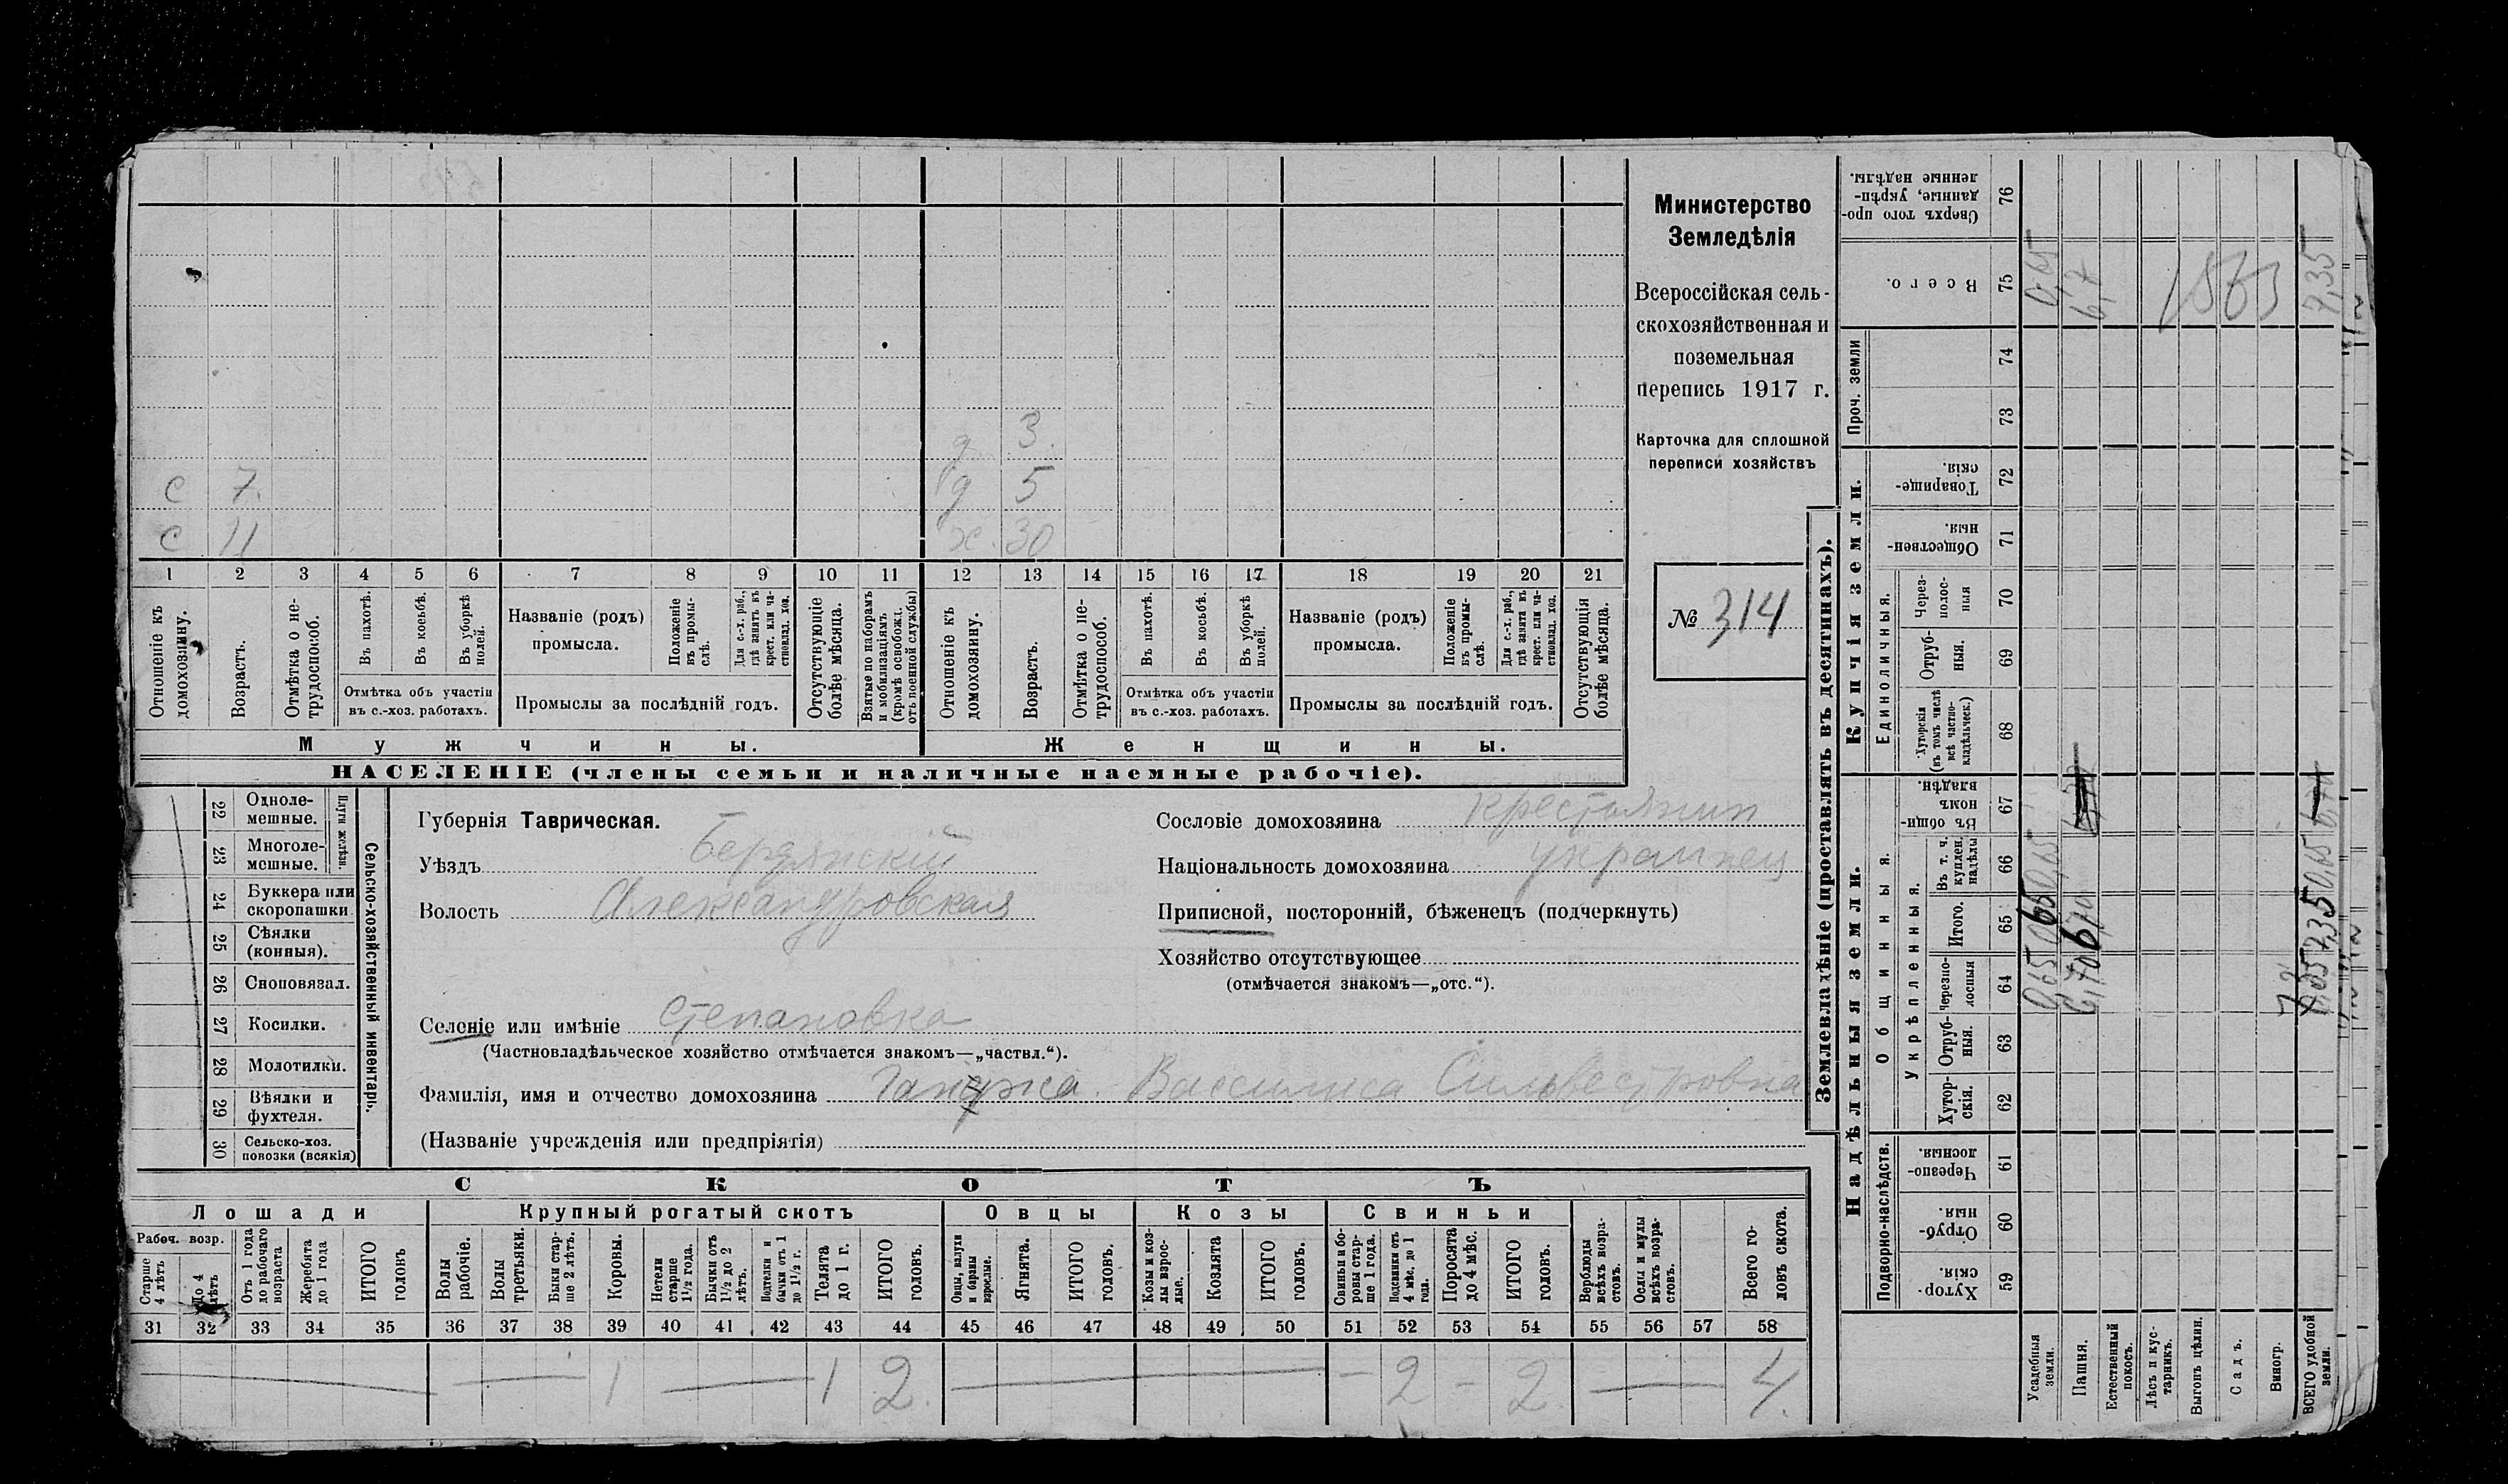 с 7.
с 11
д. 3.
д 5
ж. 30
1 2 3 4 5 6 7 8 9 10 11 12 13 14 15 16 17 18 19 20 21
Отношеніе къ домохозяину.
Возрастъ.
Отмѣтка о нетрудоспособ.
Въ пахотѣ.
Въ косьбѣ.
Въ уборкѣ полей.
Отмѣтка объ участіи
въ с.-хоз. работахъ.
Названіе (родъ)
промысла.
Положеніе въ промыслѣ.
Для с.-х. раб., гдѣ занятъ въ крест. или частновлад. хоз.
Промыслы за послѣдній годъ.
Отсутствующіе болѣе мѣсяца.
Взятые по наборамъ и мобилизаціямъ (кромѣ освобожд. отъ военной службы)
Отношеніе къ домохозяину.
Возрастъ.
Отмѣтка о нетрудоспособ.
Въ пахотѣ.
Въ косьбѣ.
Въ уборкѣ полей.
Отмѣтка объ участіи
въ с.-хоз. работахъ.
Названіе (родъ)
промысла.
Положеніе въ промыслѣ.
Для с.-х. раб., гдѣ занята въ крест. или частновлад. хоз.
Промыслы за послѣдній годъ.
Отсутствующія болѣе мѣсяца.
Мужчины.
Женщины.
НАСЕЛЕНІЕ (члены семьи и наличные наемные рабочіе).
Министерство
Земледѣлія
Всероссійская сель-
скохозяйственная и
поземельная
перепись 1917 г.
Карточка для сплошной
переписи хозяйствъ
№ 314
Сельско-хозяйственный инвентарь.
Плуги желѣзн.
22 Одноле-
мешные.
23 Многоле-
мешные.
24 Буккера или
скоропашки
25 Сѣялки
(конныя).
26 Сноповязал.
27 Косилки.
28 Молотилки.
29 Вѣялки и
фухтеля.
30 Сельско-хоз.
повозки (всякія)
Губернія Таврическая.
Уѣздъ Бердянскій
Волость Александровская
Селеніе или имѣніе Степановка
(Частновладѣльческое хозяйство отмѣчается знакомъ—„частвл.“).
Фамилія, имя и отчество домохозяина Василиса Сильвестровна
(Названіе учрежденія или предпріятія)
Сословіе домохозяина крестьянин
Національность домохозяина украинец
Приписной, посторонній, бѣженецъ (подчеркнуть)
Хозяйство отсутствующее
(отмѣчается знакомъ—„отс.“).
СКОТЪ
Лошади
Крупный рогатый скотъ
Овцы
Козы
Свиньи
Рабоч. возр.
Старше 4 лѣтъ
До 4 лѣтъ
Отъ 1 года до рабочаго возраста
Жеребята до 1 года
ИТОГО головъ
Волы рабочіе.
Волы третьяки.
Быки старше 2 лѣтъ.
Коровы.
Нетели старше 1½ года.
Бычки отъ 1½ до 2 лѣтъ.
Подтелки и бычки отъ 1 до 1½ г.
Телята до 1 г.
ИТОГО головъ.
Овцы, валухи и бараны взрослые.
Ягнята.
ИТОГО головъ.
Козы и козлы взрослые.
Козлята
ИТОГО головъ.
Свиньи и боровы старше 1 года.
Подсвинки отъ 4 мѣс. до 1 года.
Поросята до 4 мѣс.
ИТОГО головъ.
Верблюды всѣхъ возрастовъ.
Ослы и мулы всѣхъ возрастовъ.
Всего головъ скота.
31 32 33 34 35 36 37 38 39 40 41 42 43 44 45 46 47 48 49 50 51 52 53 54 55 56 57 58
1 1 2 2 2 4.
Землевладѣніе (проставлять въ десятинахъ).
Надѣльныя земли.
Купчія земли.
Проч. земли
Подворно-наслѣдств.
Общинныя.
Укрѣпленныя.
Единоличныя.
Сверхъ того проданные, укрѣпленные надѣлы. 76
Всего. 75
74
73
Товарищескія. 72
Общественныя. 71
Черезполосныя 70
Отрубныя. 69
Хуторскія (въ томъ числѣ всѣ частновладѣльческ.) 68
Въ общинномъ владѣн. 67
Въ т. ч. куплен. надѣлы 66
Итого. 65
Черезполосныя 64
Отрубныя. 63
Хуторскія. 62
Черезполосныя. 61
Отрубныя. 60
Хуторскія. 59
Усадебныя земли.
Пашня.
Естественный покосъ.
Лѣсъ и кустарникъ.
Выгонъ цѣлин.
Садъ.
Виногр.
ВСЕГО удобной земли.
0,65
6,7
1563
7,35